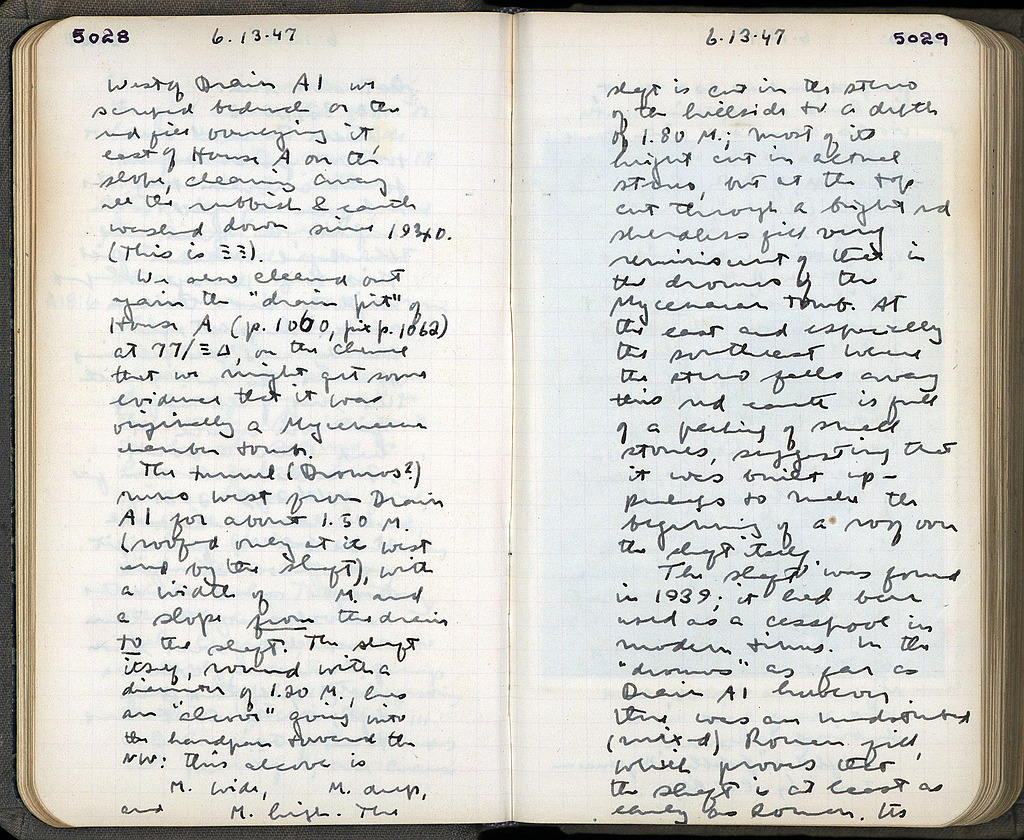 5028
6.13.47
West of Drain A1 we
scraped bedrock or the
red fill overlying it
east of House A on the
slope, clearing away
all the rubbish & earth
washed down since 1940.
(This is ΞΞ).
We also cleaned out
again the "drain pit" of
House A (p. 1060, pix p. 1062)
at 77/ΞΔ, on the chance
that we might get some
evidence that it was
originally a Mycenaean
chamber tomb.
The tunnel (Dromos?)
runs west from Drain
A1 for about 1.50 M.
(roofed only at its west
end by the shaft), with
a width of M. and
a slope from the drain
to the shaft. The shaft
itself, round with a
diameter of 1.20 M, has
an "alcove" going into
the hardpan toward the
NW: this alcove is
M. wide, M. deep,
and M. high. The
6.13.47
5029
shaft is cut in the stereo
of the hillside to a depth
of 1.80 M.; most of its
height cut in actual
stereo, but at the top
cut through a bright red
sherdless fill very
reminiscent of that in
the dromos of the
Mycenaean tomb. At
the east and especially
the southeast where
the stereo falls away
this red earth is full
of a packing of small
stones, suggesting that
it was built up –
perhaps to make the
beginning of a roof over
the shaft itself.
The shaft was found
in 1939; it had been
used as a cesspool in
modern times. In the
"dromos" as far as
Drain A1 however
there was an undisturbed
(mixed) Roman fill,
which proves that
the shaft is at least as
early as Roman. Its